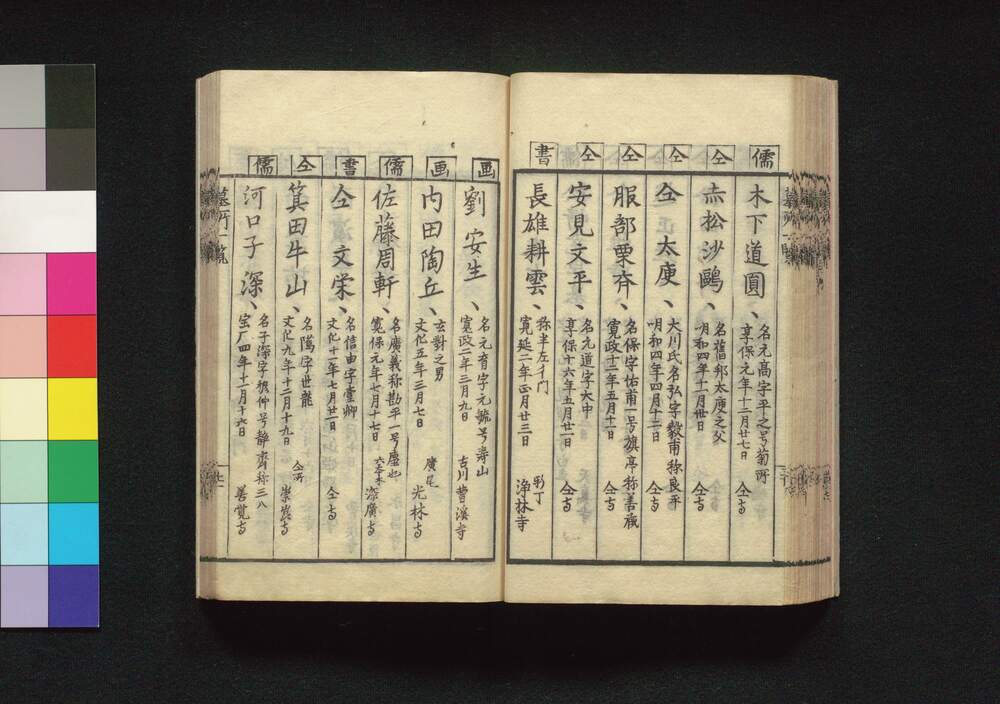 儒
木下道圓
名元高字平之号菊所
享保元年十二月廿七日
仝寺
仝
赤松沙鷗
名舊邦太庚之父
明和四年十一月卅日
仝寺
仝
仝太庚
大川氏名弘字毅甫称良平
明和四年四月十二日
仝寺
仝
服部栗斉
名保字佑甫一号旗亭称善蔵
寛政十二年五月十一日
仝寺
仝
安見文平
名元道字大中
享保十六年五月廿一日
仝寺
書
長雄耕雲
称半左衛門
寛延二年正月廿三日
浄林寺
画
劉安生
名元育字元毓号寿山
寛政二年三月九日
古川
曹渓寺
画
内田陶丘
玄對之男
文化五年三月七日
廣尾
光林寺
儒
佐藤周軒
名廣義称勘平一号塵也
寛保元年七月十七日
六本木
深廣寺
書
仝文栄
名信由字臺卿
文化十一年七月廿一日
仝寺
仝
箕田牛山
文化九年十二月十九日
仝所
崇巌寺
儒
河口子深
名子深字穆仲号静斎称三八
宝厂四年十一月十六日
善覚寺
墓所一覧